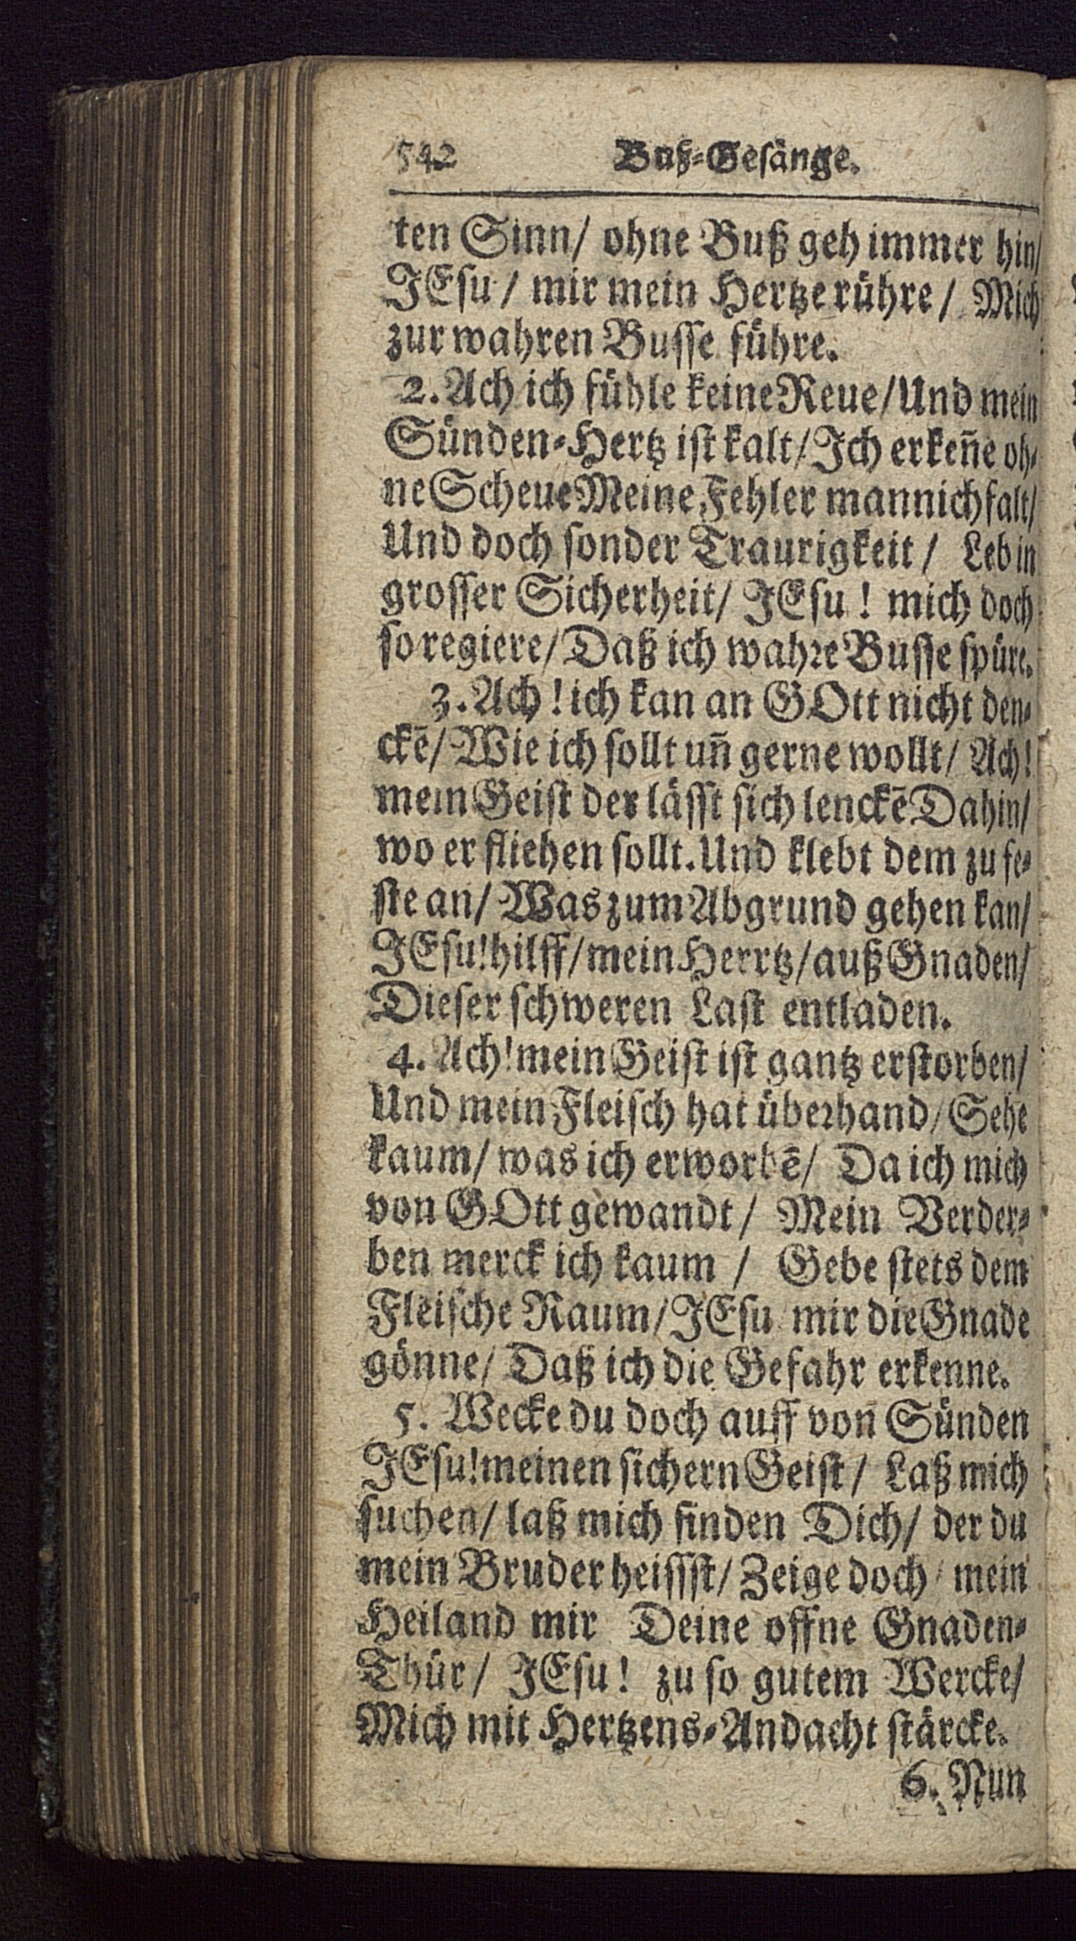 542 Buß-Gesänge.
ten Sinn/ ohne Buß geh immer hin/
JEsu/ mir mein Hertze rühre/ Mich
zur wahren Busse führe.
2. Ach ich fühle keine Reue/Und mein
Sünden-Hertz ist kalt/Ich erkeñe oh-
ne Scheue Meine Fehler mannichfalt/
Und doch sonder Traurigkeit/ Leb in
grosser Sicherheit/ JEsu! mich doch
so regiere/Daß ich wahre Busse spüre.
3. Ach! ich kan an GOtt nicht den-
ckē/ Wie ich sollt uñ gerne wollt/ Ach!
mein Geist der lässt sich lenckē Dahin/
wo er fliehen sollt. Und klebt dem zu fe-
ste an/ Was zum Abgrund gehen kan/
JEsu! hilff/mein Herrtz/auß Gnaden/
Dieser schweren Last entladen.
4. Ach! mein Geist ist gantz erstorben/
Und mein Fleisch hat überhand/Sehe
kaum/ was ich erworbē/ Da ich mich
von GOtt gewandt/ Mein Verder-
ben merck ich kaum / Gebe stets dem
Fleische Raum/JEsu mir die Gnade
gönne/ Daß ich die Gefahr erkenne.
5. Wecke du doch auff von Sünden
JEsu! meinen sichern Geist/ Laß mich
suchen/ laß mich finden Dich/ der du
mein Bruder heissst/ Zeige doch/ mein
Heiland mir Deine offne Gnaden-
Thür/ JEsu! zu so gutem Wercke/
Mich mit Hertzens-Andacht stärcke.
6. Nun